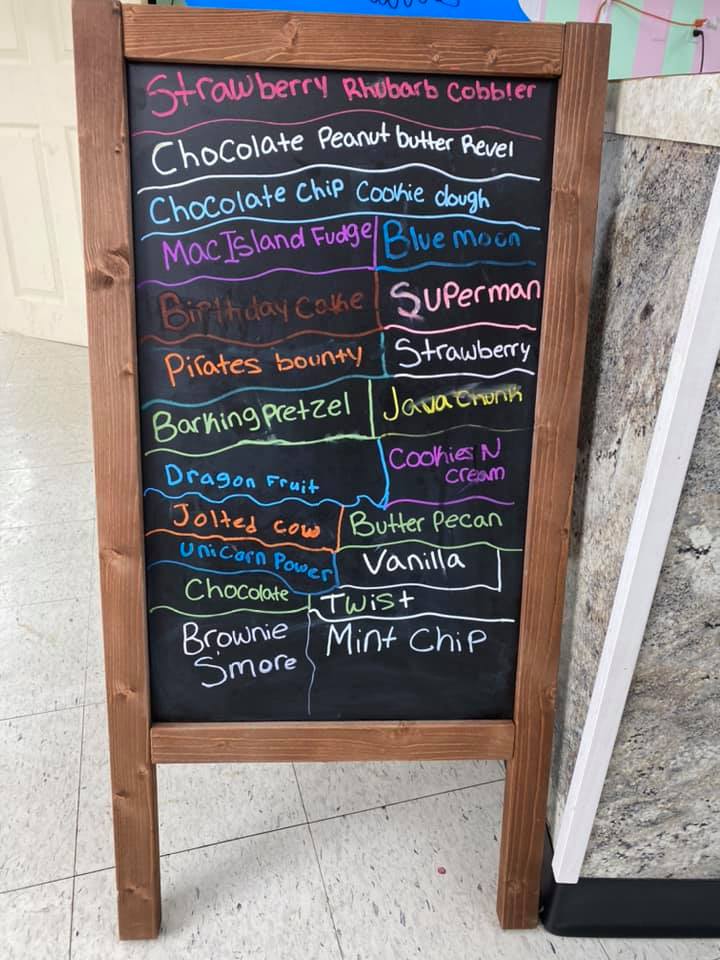 Strawberry Rhubarb Cobbler
Chocolate Peanut butter Revel
Chocolate Chip Cookie dough
Mac Island Fudge
Blue moon
Birthday Cake
Superman
Pirates bounty
Strawberry
Barking Pretzel
Java Chunk
Dragon Fruit
Cookies N
cream
Jolted Cow
Butter Pecan
Unicorn Power
Vanilla
Chocolate
Twist
Brownie
S'more
Mint Chip